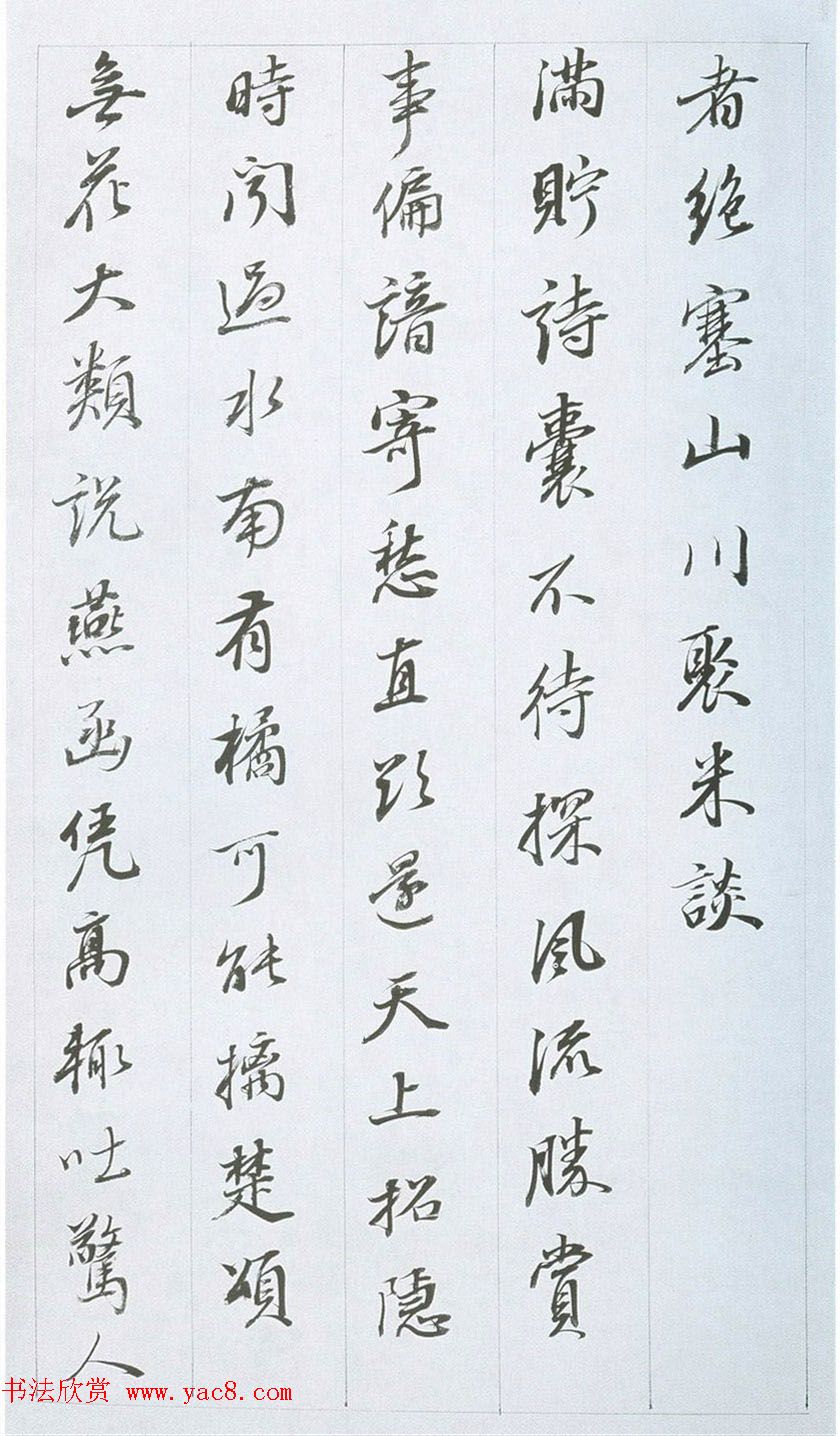 者絶塞山川聚米談
滿貯詩囊不待探風流勝賞
事偏諳寄愁直欲還天上招隱
時聞過水南有橘可能摛楚頌
無花大類説燕函凭高輒吐驚人
书法欣赏 www.yac8.com